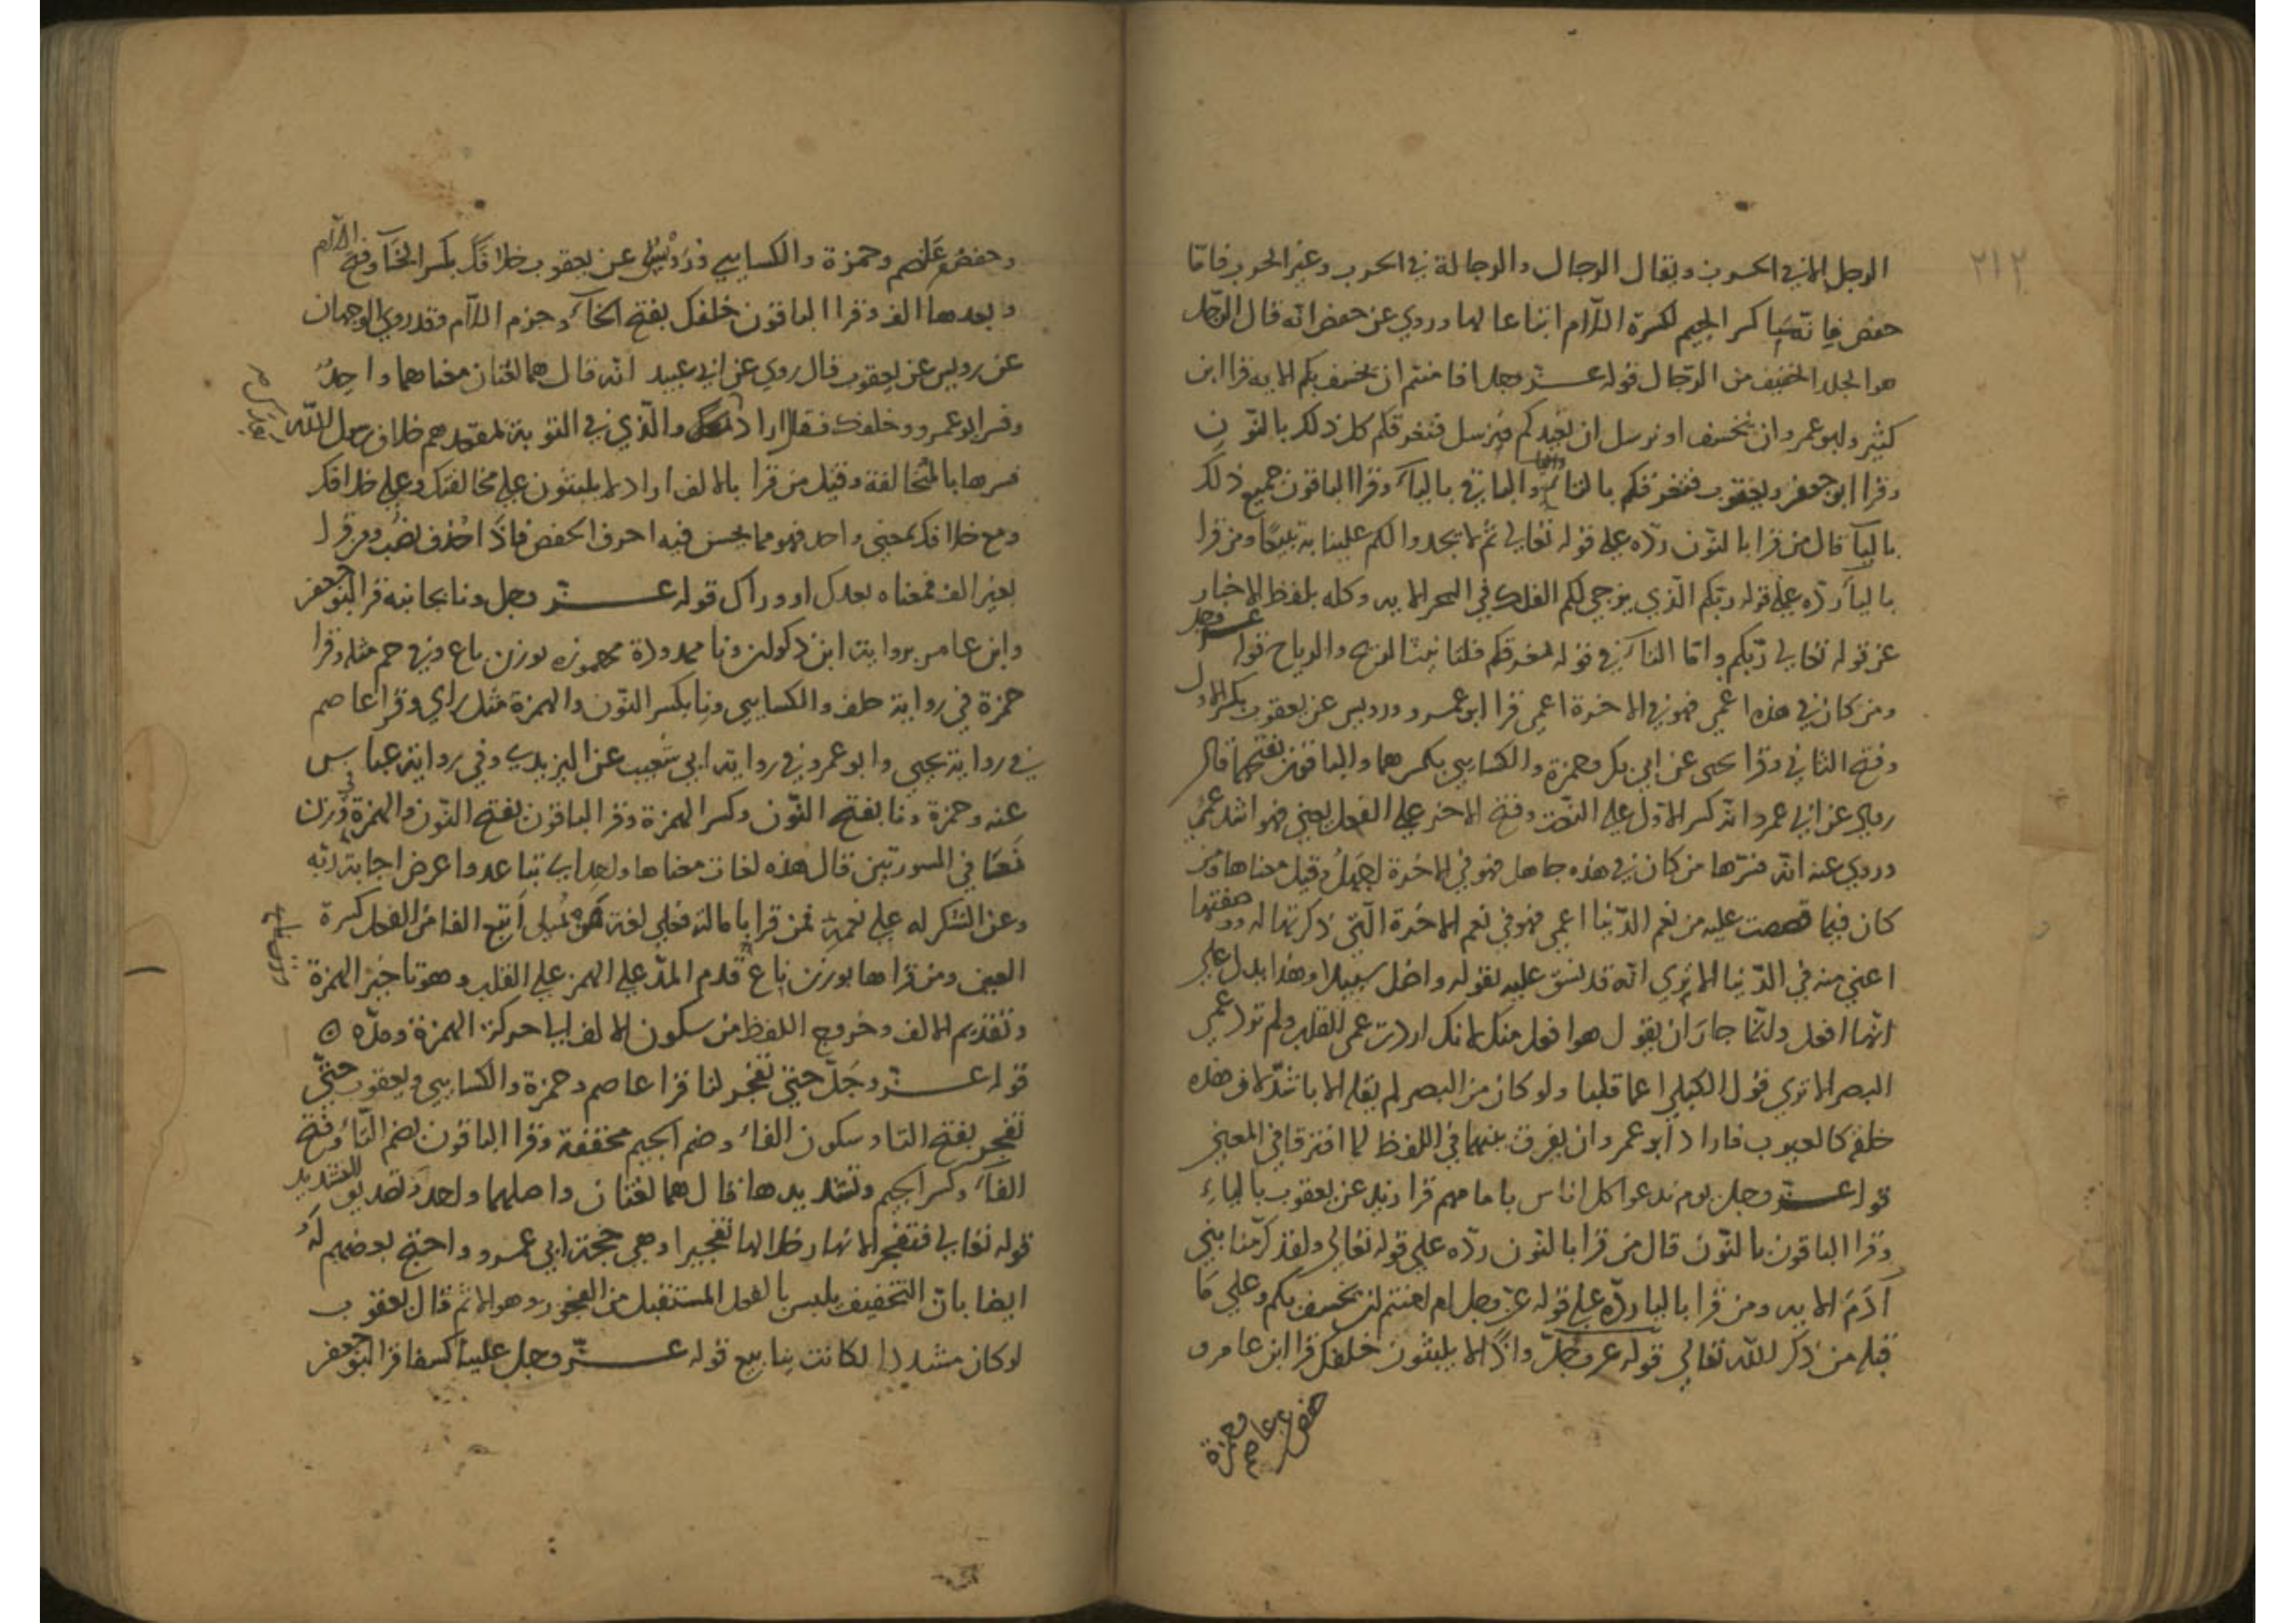 ٢١٢
الرجل الا في الحرب ويقال الرجال والرجالة في الحرب وغير الحرب فاما
حفص فانه كسر الجيم لكسرة اللام اتباعا لها وروي عن حفص انه قال الرجل
هو الخفيف من الرجال قوله عز وجل افا منتم ان يخسف بكم الايه قرا ابن
كثير وابو عمرو ان نخسف او نرسل ان نعيدكم فنرسل فنغرقكم كل ذلك بالنون
وقرا ابو جعفر ويعقوب فتغرقكم بالتا والباقي باليآ وقرا الباقون جميع ذلك
باليآ قال من قرا بالنون ردّه على قوله تعالي ثم لا تجدوا لكم علينا به تبيعًا ومن قرا
باليآ ردّه على قوله ربّكم الّذي يزجي لكم الفلك في البحر الايه وكله بلفظ الاخبار
عن قوله تعالي ربّكم وامّا التآ في قوله فتغرقكم فلتانيث الريح والرياح قوله عز وجل
ومن كان في هذه اعمي فهو في الاخرة اعمي قرا ابو عمرو ورويس عن يعقوب بكسر الاول
وفتح الثاني وقرا يحيى عن ابي بكر وحمزة والكسايي بكسرهما والباقون بفتحهما قال
روي عن ابي عمرو انه كسر الاول على النعت وفتح الاخر على الفعل يعني فهو اشد عمي
وروي عنه انه فسّرها من كان في هذه جاهل فهو في الاخرة اجهل وقيل معناها من
كان فيما قصصت عليه من نعم الدّنيا اعمي فهو في نعم الاخرة الّتي ذكرتها له ووصفتها
اعمي منه في الدّنيا الا تري انّه قد نسق عليه بقوله واضل سبيلا وهذا يدل على
انّها افعل وانّما جاز ان يقول هو افعل منك لانك اردت عمى القلب ولم ترد عمي
البصر الا تري قول القيل اعما قلبا ولو كان من البصر لم يقله الا باشدّ لان هذه
خلقه كالعيوب فاراد ابو عمرو ان يفرق بينهما في اللفظ لما افترقا في المعني
قوله عز وجل يوم ندعوا كل اناس بامامهم قرا زيد عن يعقوب بالياءِ
وقرا الباقون بالنّون قال من قرا بالنّون ردّه على قوله تعالي ولقد كرّمنا بني
آدَمَ الايه ومن قرا باليا ردّه على قوله عزّ وجل ام امنتم ان يخسف بكم وعلى مَا
قبله من ذكر الله تعالي قوله عز وجلّ واذًا لا يلبثون خلفك قرا ابن عامر و
حفص عن عاصم وحمزة
وحفص عن عاصم وحمزة والكسايي ورُوَيْس عن يعقوب خلافك بكسر الخآ وفتح اللام
وبعدها الف وقرا الباقون خلفك بفتح الخآ وجزم اللآم وقد روي الوجهان
عن رويس عن يعقوب قال روي عن ابي عبيد انّه قال هما لغتان معناهما واحِدٌ
وفسر ابو عمرو خلفك فقال اراد بعدك والّذي في التوبة بمقعدهم خلاف رسول الله
فسرها بالمُخالفة وقيل من قرا بالالف اراد لا يلبثون على مخالفتك وعلى خلافك
ومع خلافك بمعني واحد فهو مما يحسن فيه احرف الخفض فاذا حُذف نصب ومن قرا
بغير الف فمعناه بعدك او وراك قوله عز وجل ونا بجانبه قرا ابو جعفر
وابن عامر برواية ابن ذكوان ونا ممدودة مهموزه بوزن باع وفي حم مثله وقرا
حمزة في رواية خلف والكسايي ونِا بكسر النّون والهمزة مثل راي وقرا عاصم
في رواية يحيي وابو عمرو في رواية ابي شُعيب عن اليزيدي وفي رواية عباس
عنه وحمزة ونا بفتح النّون وكسر الهمزة وقرا الباقون بفتح النّون والهمزة في وزن
نَعَا في السورتين قال هذه لغات معناها واحد اي تباعد واعرض اجابة ربّه
وعن الشكر له على نعمه فمن قرا بامالة فعلى لغة من يُميل اتبع الفا من الفعل كسرة
العين ومن قراها بوزن باع قدم المدّ على الهمز على القلب وهو تاخير الهمزة
وتقديم الالف وخروج اللفظ من سكون الالف الي حركة الهمزة ومدّه ٥
قوله عز وجَلّ حتي تفجر لنا قرا عاصم وحمزة والكسايي ويعقوب حتّي
تفجر بفتح التا وسكون الفآ وضم الجيم مخففة وقرا الباقون بضم التّآ وفتح
الفآ وكسر الجيم وتشديدها قال هما لغتان واصلهما واحد وتصديق التشديد
قوله تعالي فتفجر الانهار خلالها تفجيرا وهي حُجّة ابي عمرو واحتج بعضهم لَه
ايضا بانّ التخفيف يلبس بالفعل المستقبل من الفجور وهو الاثم قال يعقوب
لو كان مشددا لكانت ينابيع قوله عز وجل علينا كسفا قرا ابو جعفر